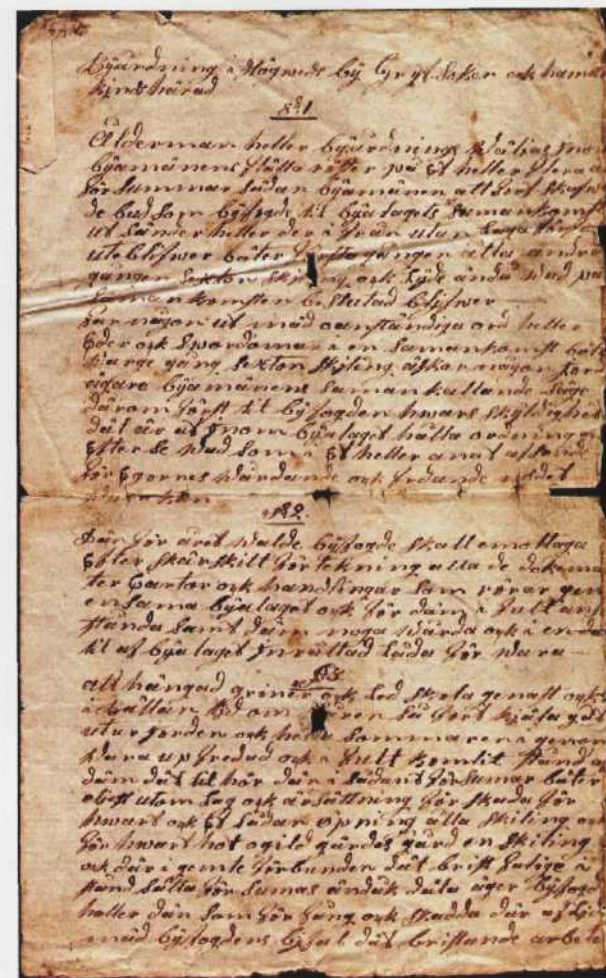 Byordning i Hägweds by Gryt Soken och hamar
kinshärad
§:1
Olderman heller byordnings wälias Inom
byamänens slätta röster på Et heller flera år
försummar sådan byamänen att fort
de bud som byfogde til byalagets samankomst
utsänder heller der i från utan laga förfall
uteblifwer böter första gången åtta andra
gången sexton skiling och lyde ändå wad på
samankomsten beslutad blifwer
far någon ut mäd oanständiga ord heller
Eder och swordomar i en samankomst böte
warge gång sexton skiling äskar någon jord
ägare byamänens samankallande säge
därom först til byfogden hwars skyldighet
dät är at Inom byalaget hålla ordning
Efter se wad som i Et heller anat
för Egornes wårdande och fredande
§2.
Dän för året walde byfogde skall emottaga
Efter särskilt förtekning alla de dokumä
ter Cartor och handlingar som rörar gem
ensama byalaget och för däm i fult
stånda samt däm noga wårda och i en
til at byalaget Inrättad låda för wara
§3
alt hängad griner och led skola genast och
i om wåren så fort kjäla går
utur jorden och hela sommaren i genom
wara upfredad och i fult komlit stånd
däm dät til hör där i sådant försumar böter
utom lag och ärsättning för skada för
hwart och Et sådan öpning åtta skiling och
för hwart hot ogild gärdes gård en skiling
och där i gemte förbunden dät brist falige i
stånd sätta för sumas ändåk däta äger byfogd
heller dän som för fång och skadda där af lide
mäd byfogdens bifal dät bristande arbete